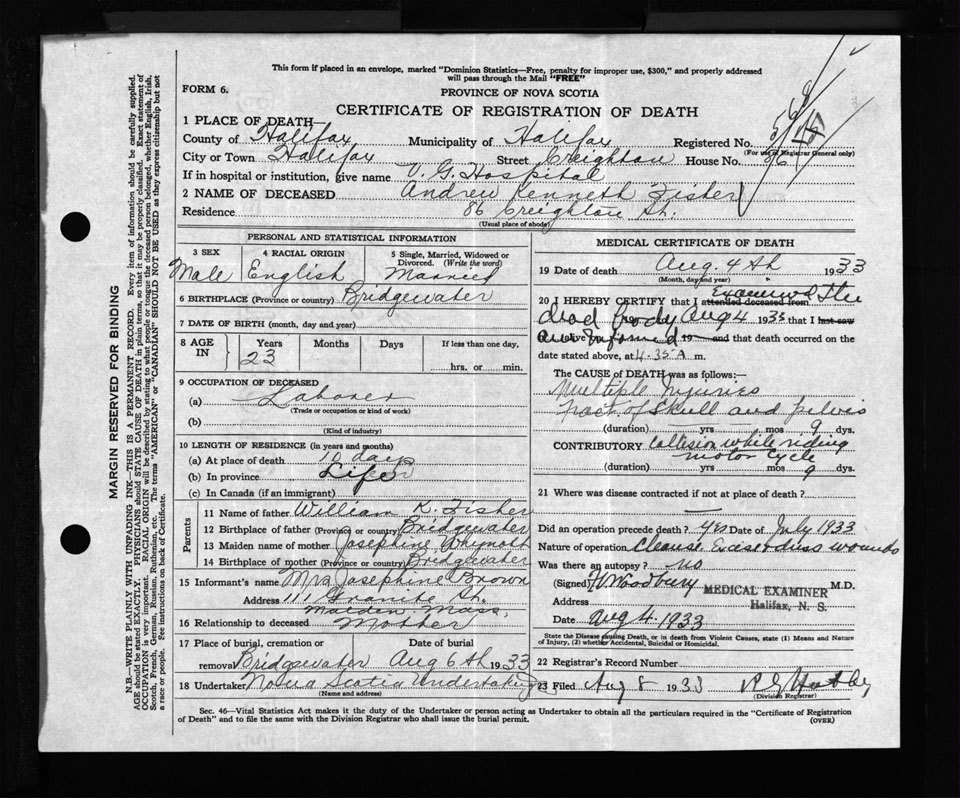 This form if placed in an envelope, marked "Dominion Statistics—Free, penalty for improper use, $300," and properly addressed
will pass through the Mail "FREE"
FORM 6.
PROVINCE OF NOVA SCOTIA
CERTIFICATE OF REGISTRATION OF DEATH
1 PLACE OF DEATH—
County of Halifax Municipality of Halifax Registered No.
(For use of Registrar General only)
City or Town Halifax Street Creighton House No. 86
If in hospital or institution, give name V. G. Hospital
2 NAME OF DECEASED Andrew Kenneth Fisher
Residence 86 Creighton St.
(Usual place of abode)
PERSONAL AND STATISTICAL INFORMATION
3 SEX 4 RACIAL ORIGIN 5 Single, Married, Widowed or Divorced. (Write the word)
Male English Married
6 BIRTHPLACE (Province or country) Bridgewater
7 DATE OF BIRTH (month, day and year)
8 AGE IN Years Months Days If less than one day,
23 hrs. or min.
9 OCCUPATION OF DECEASED
(a) Laborer
(Trade or occupation or kind of work)
(b)
(Kind of industry)
10 LENGTH OF RESIDENCE (in years and months)
(a) At place of death 10 days
(b) In province Life
(c) In Canada (if an immigrant)
Parents
11 Name of father William K. Fisher
12 Birthplace of father (Province or country) Bridgewater
13 Maiden name of mother Josephine Whynott
14 Birthplace of mother (Province or country) Bridgewater
15 Informant's name Mrs Josephine Brown
Address 111 Granite St.
Malden Mass.
16 Relationship to deceased Mother
17 Place of burial, cremation or Date of burial
removal Bridgewater Aug 6th 1933
18 Undertaker Nova Scotia Undertaking
(Name and address)
MEDICAL CERTIFICATE OF DEATH
19 Date of death Aug. 4th 1933
(Month, day and year)
20 I HEREBY CERTIFY that I attended deceased from examined the
dead body Aug 4 1933 that I last saw
am informed 19 and that death occurred on the
date stated above, at 4.35 A m.
The CAUSE OF DEATH was as follows:—
Multiple Injuries
fract of Skull and pelvis
(duration) yrs mos 9 dys.
CONTRIBUTORY Collision while riding
motor cycle
(duration) yrs mos 9 dys.
21 Where was disease contracted if not at place of death?
Did an operation precede death? yes Date of July 1933
Nature of operation Cleanse wounds
Was there an autopsy? no
(Signed) Woodbury M.D.
MEDICAL EXAMINER
Address Halifax, N. S.
Date Aug 4 1933
State the Disease causing Death, or in death from Violent Causes, state (1) Means and Nature
of Injury, (2) whether Accidental, Suicidal or Homicidal.
22 Registrar's Record Number
23 Filed Aug 8 1933
(Division Registrar)
Sec. 46—Vital Statistics Act makes it the duty of the Undertaker or person acting as Undertaker to obtain all the particulars required in the "Certificate of Registration
of Death" and to file the same with the Division Registrar who shall issue the burial permit. (OVER)
MARGIN RESERVED FOR BINDING
N.B.—WRITE PLAINLY WITH UNFADING INK—THIS IS A PERMANENT RECORD. Every item of information should be carefully supplied.
AGE should be stated EXACTLY. PHYSICIANS should STATE CAUSE OF DEATH in plain terms, so that it may be properly classified. Exact statement of
OCCUPATION is very important. RACIAL ORIGIN will be described by stating to what people or tongue the deceased person belonged, whether English, Irish,
Scotch, French, German, Russian, Ruthenian, etc. The terms "AMERICAN" or "CANADIAN" SHOULD NOT BE USED as they express citizenship but not
a race or people. See instructions on back of Certificate.